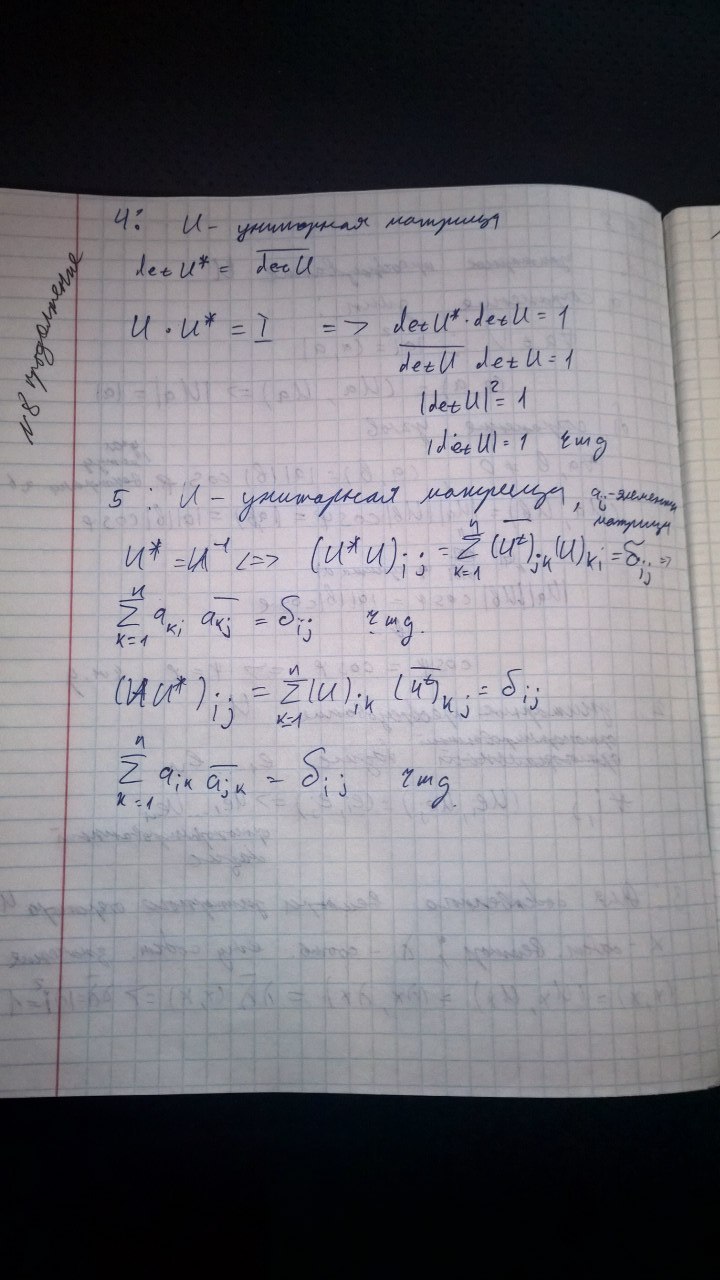 №8 продолжение
4: U - унитарная матрица
det U* = \overline{det U}
U · U* = I => det U* · det U = 1
\overline{det U} det U = 1
|det U|² = 1
|det U| = 1 чтд
5: U - унитарная матрица, a_{ij} - элементы матрицы
U* = U⁻¹ <=> (U* U)_{ij} = \sum_{k=1}^{n} (\overline{U^t})_{jk} (U)_{ki} = δ_{ij} =>
\sum_{k=1}^{n} a_{ki} \overline{a_{kj}} = δ_{ij} чтд.
(U U*)_{ij} = \sum_{k=1}^{n} (U)_{ik} (\overline{U^t})_{kj} = δ_{ij}
\sum_{k=1}^{n} a_{ik} \overline{a_{jk}} = δ_{ij} чтд.